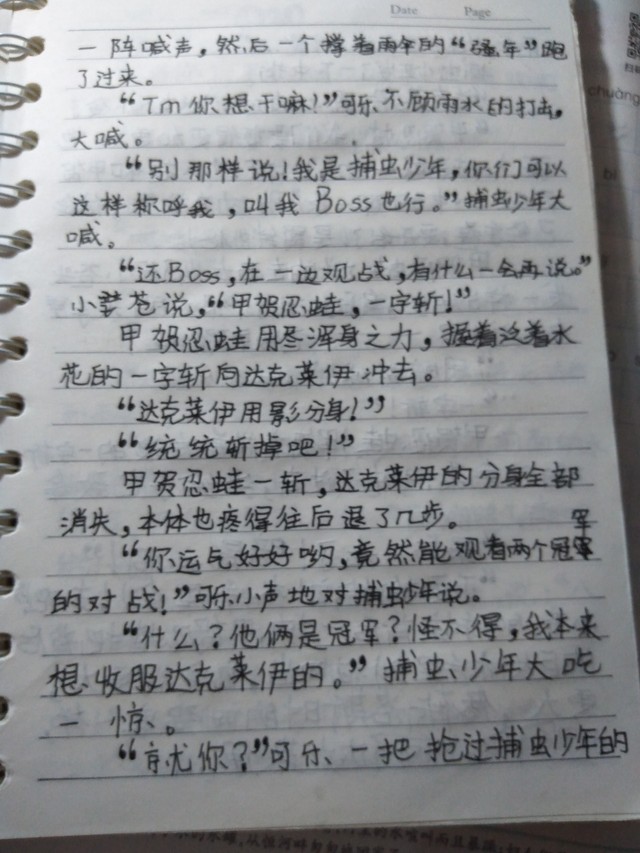 Date Page
一阵喊声，然后一个撑着雨伞的“强年”跑
了过来。
“Tm你想干嘛！”可乐不顾雨水的打击，
大喊。
“别那样说！我是捕虫少年，你们可以
这样称呼我，叫我Boss也行。”捕虫少年大
喊。
“还Boss，在一边观战，有什么一会再说。”
小苍说，“甲贺忍蛙，一字斩！”
甲贺忍蛙用尽浑身之力，握着泛着水
花的一字斩向达克莱伊冲去。
“达克莱伊用影分身！”
“统统斩掉吧！”
甲贺忍蛙一斩，达克莱伊的分身全部
消失，本体也疼得往后退了几步。
“你运气好好哟，竟然能观看两个冠军
的对战！”可乐小声地对捕虫少年说。
“什么？他俩是冠军？怪不得，我本来
想收服达克莱伊的。”捕虫少年大吃
一惊。
“就你？”可乐一把抢过捕虫少年的
chuàng